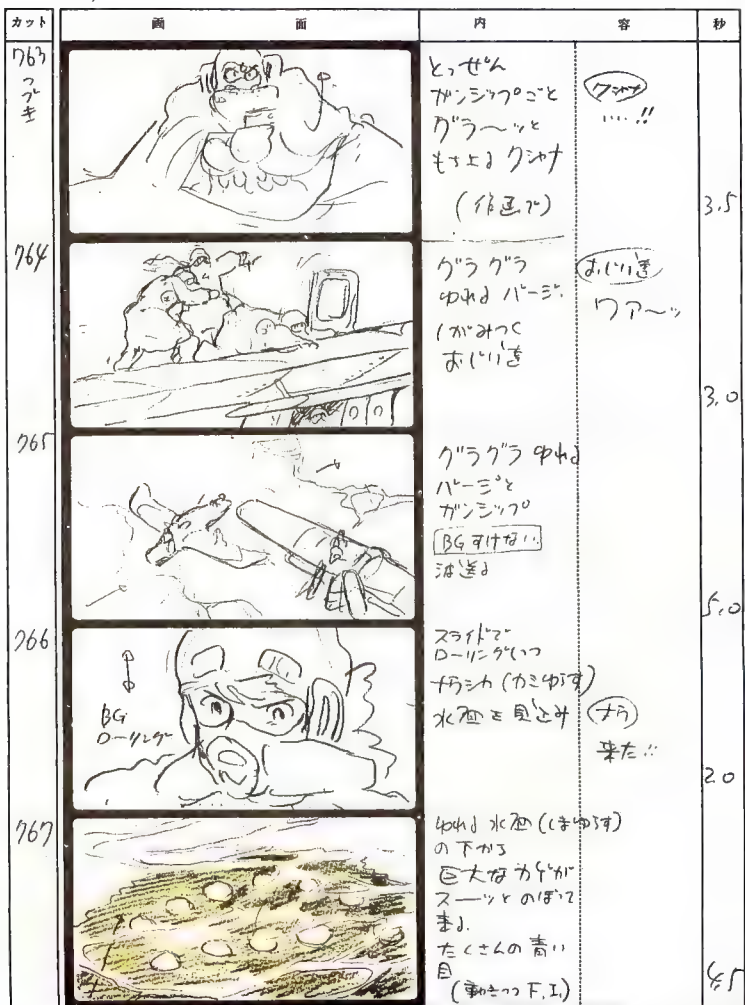 カット 画 面 内 容 秒
763
つづき
とつぜん
ガンシップごと
グラ〜ッと
もち上る クシャナ
(作画で)
クシャナ
‥‥!!
3.5
764
グラグラ
ゆれる バージ.
しがみつく
おじい達
おじい達
ワァ〜ッ
3.0
765
グラグラ ゆれる
バージと
ガンシップ
BGすけない
波送る
5.0
766
BG
ローリング
スライドで
ローリングしつつ
ナウシカ (カミゆらす)
水面を見込み
ナウ
来た!!
2.0
767
ゆれる 水面 (
の下から
巨大なカゲが
スーッと のぼって
来る.
たくさんの 青い
目
(動きつつ F.I.)
4.5